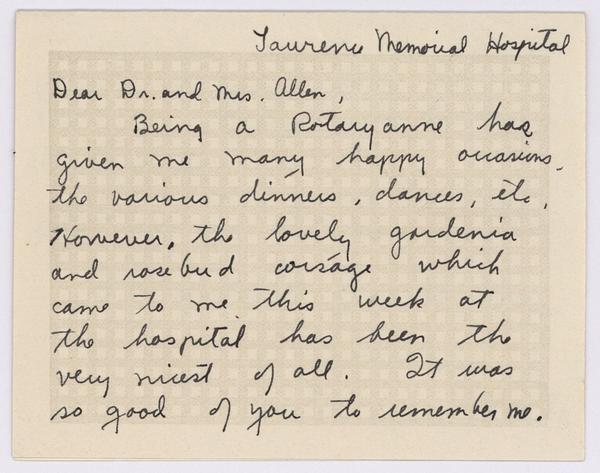 Lawrence Memorial Hospital
Dear Dr. and Mrs. Allen,
Being a Rotaryanne has
given me many happy occasions,
the various dinners, dances, etc.
However, the lovely gardenia
and rosebud corsage which
came to me this week at
the hospital has been the
very nicest of all. It was
so good of you to remember me.